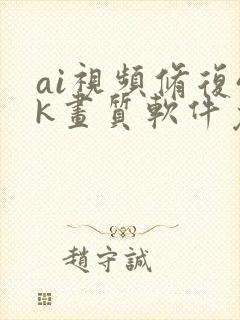 ai視頻脩復
k畫質軟件
趙守誠